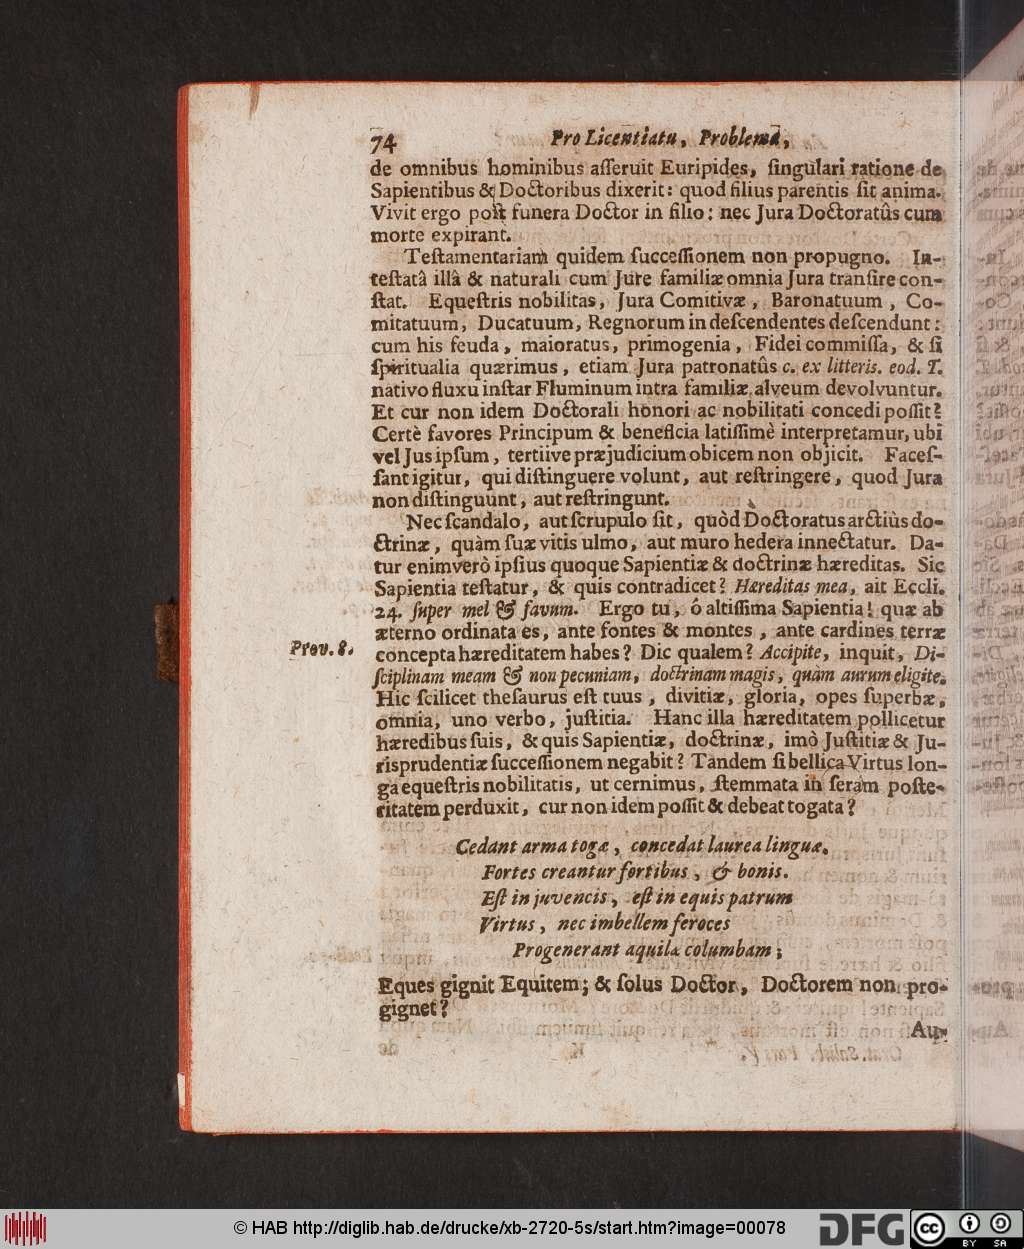 74 Pro Licentiatu, Problema,
de omnibus hominibus aſſeruit Euripides, ſingulari ratione de
Sapientibus & Doctoribus dixerit: quod filius parentis ſit anima.
Vivit ergo poſt funera Doctor in filio: nec Jura Doctoratûs cum
morte expirant.
Teſtamentariam quidem ſucceſſionem non propugno. In-
teſtatâ illâ & naturali cum Jure familiæ omnia Jura tranſire con-
ſtat. Equeſtris nobilitas, Jura Comitivæ, Baronatuum, Co-
mitatuum, Ducatuum, Regnorum in deſcendentes deſcendunt:
cum his feuda, maioratus, primogenia, Fidei commiſſa, & ſi
ſpiritualia quærimus, etiam Jura patronatûs c. ex litteris. eod. T.
nativo fluxu inſtar Fluminum intra familiæ alveum devolvuntur.
Et cur non idem Doctorali honori ac nobilitati concedi poſſit?
Certè favores Principum & beneficia latiſſimè interpretamur, ubi
vel Jus ipſum, tertiive præjudicium obicem non objicit. Faceſ-
ſant igitur, qui diſtinguere volunt, aut reſtringere, quod Jura
non diſtinguunt, aut reſtringunt.
Nec ſcandalo, aut ſcrupulo ſit, quòd Doctoratus arctiùs do-
ctrinæ, quàm ſuæ vitis ulmo, aut muro hedera innectatur. Da-
tur enimverò ipſius quoque Sapientiæ & doctrinæ hæreditas. Sic
Sapientia teſtatur, & quis contradicet? Hæreditas mea, ait Eccli.
24. ſuper mel & favum. Ergo tu, ó altiſſima Sapientia! quæ ab
æterno ordinata es, ante fontes & montes, ante cardines terræ
Prov. 8. concepta hæreditatem habes? Dic qualem? Accipite, inquit, Di-
ſciplinam meam & non pecuniam, doctrinam magis, quàm aurum eligite.
Hic ſcilicet theſaurus eſt tuus, divitiæ, gloria, opes ſuperbæ,
omnia, uno verbo, juſtitia. Hanc illa hæreditatem pollicetur
hæredibus ſuis, & quis Sapientiæ, doctrinæ, imò Juſtitiæ & Ju-
risprudentiæ ſucceſſionem negabit? Tandem ſi bellica Virtus lon-
ga equeſtris nobilitatis, ut cernimus, ſtemmata in ſeram poſte-
ritatem perduxit, cur non idem poſſit & debeat togata?
Cedant arma togæ, concedat laurea linguæ.
Fortes creantur fortibus, & bonis.
Eſt in juvencis, eſt in equis patrum
Virtus, nec imbellem feroces
Progenerant aquilæ columbam;
Eques gignit Equitem; & ſolus Doctor, Doctorem non pro-
gignet?
Au-
© HAB http://diglib.hab.de/drucke/xb-2720-5s/start.htm?image=00078
DFG
cc
BY SA